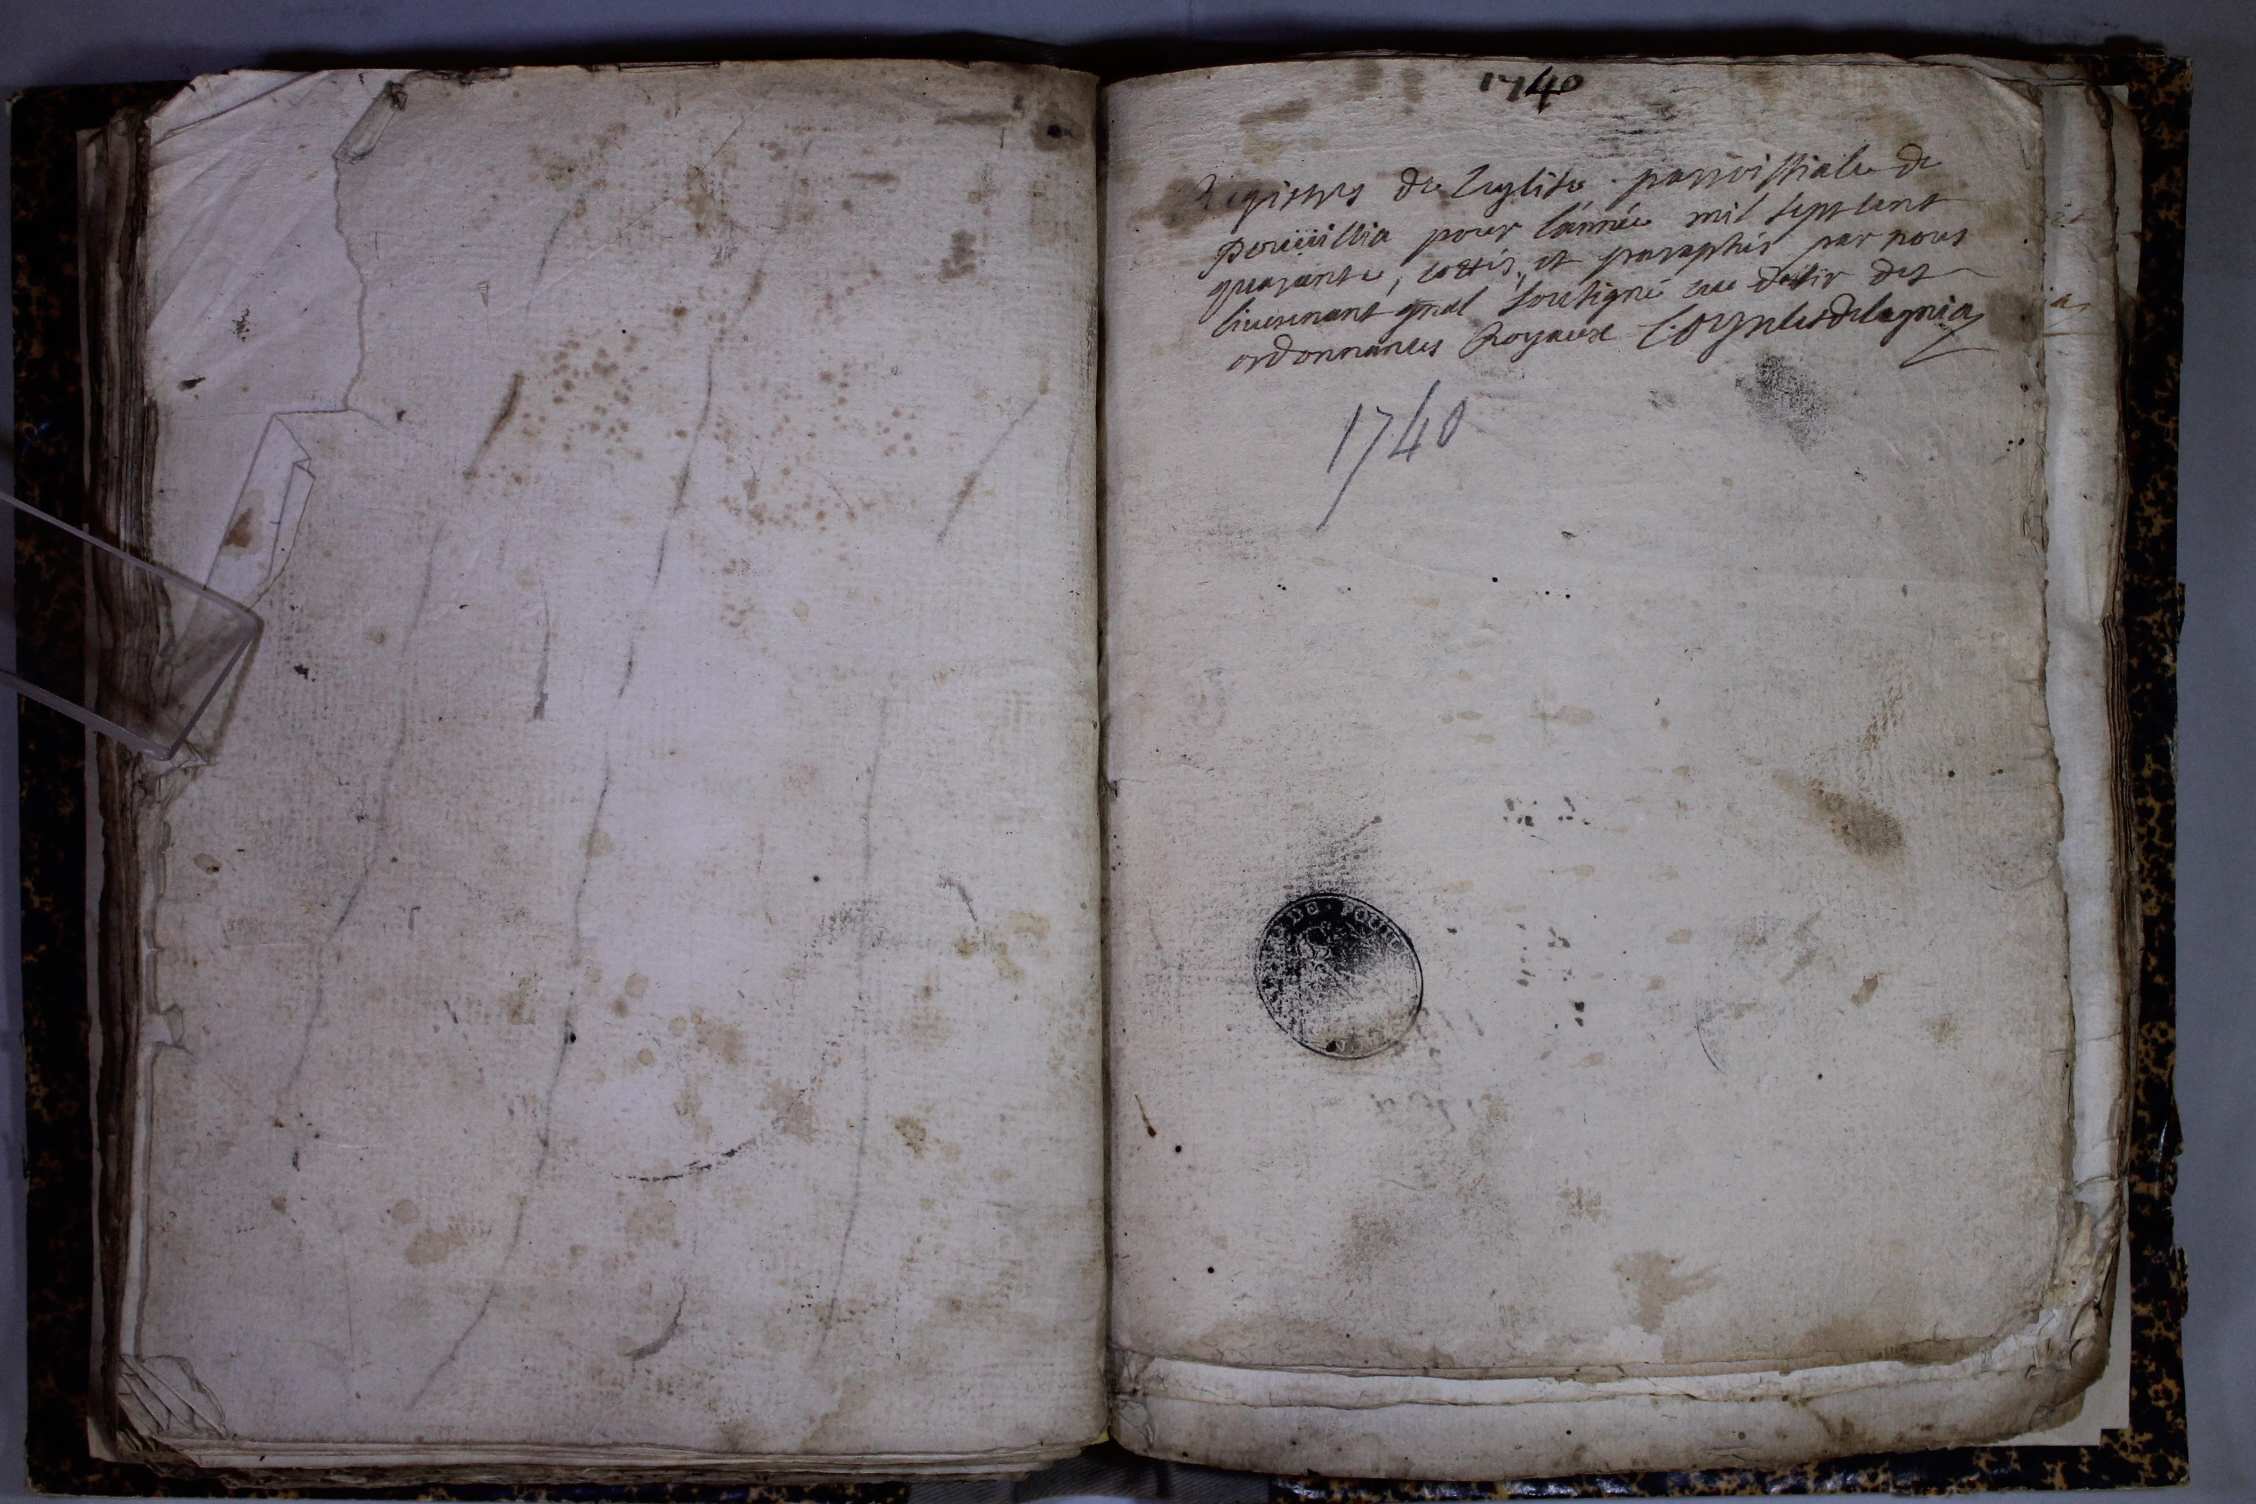 1740
Registres de Leglise parroissiale de
pour l'année mil sept cent
quarante, cottés, et paraphés par nous
lieutenant gnal soussigné au desir des
ordonnances Royaux
1740
DE · POUI